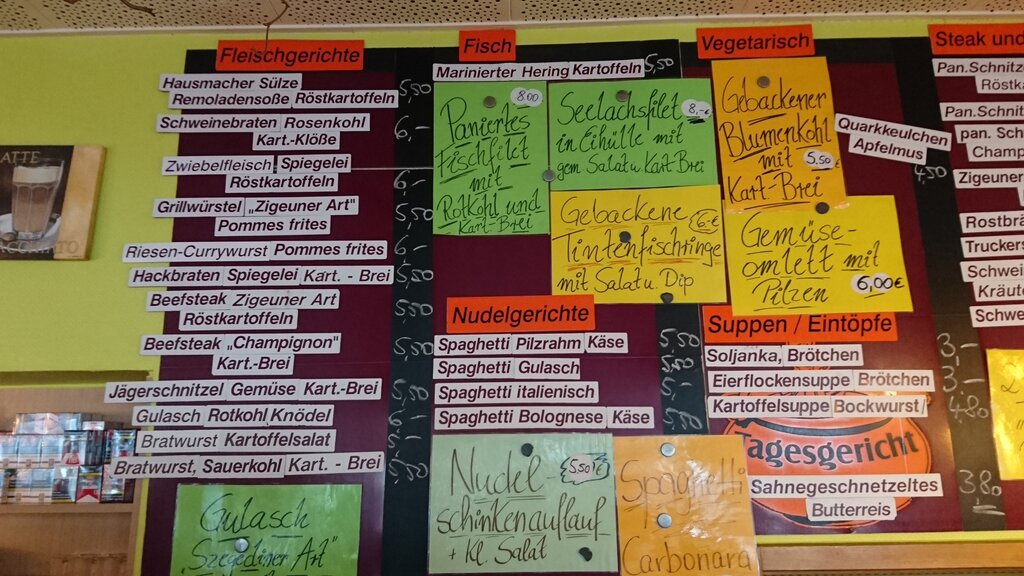 Fleischgerichte
Hausmacher Sülze
Remoladensoße Röstkartoffeln 5,50
Schweinebraten Rosenkohl 6,-
Kart.-Klöße
Zwiebelfleisch Spiegelei 6,-
Röstkartoffeln
Grillwürstel „Zigeuner Art" 5,50
Pommes frites
Riesen-Currywurst Pommes frites 6,-
Hackbraten Spiegelei Kart. - Brei 5,50
Beefsteak Zigeuner Art 5,50
Röstkartoffeln
Beefsteak „Champignon" 5,50
Kart.-Brei
Jägerschnitzel Gemüse Kart.-Brei 5,50
Gulasch Rotkohl Knödel 6,-
Bratwurst Kartoffelsalat 5,-
Bratwurst, Sauerkohl Kart. - Brei
Gulasch
„Szegediner Art"
Fisch
Marinierter Hering Kartoffeln 5,50
Paniertes 8.00
Fischfilet
mit
Rotkohl und
Kart-Brei
Seelachsfilet 8,-€
in Eihülle mit
gem Salat u. Kart-Brei
Gebackene 6,-€
Tintenfischringe
mit Salat u. Dip
Nudelgerichte
Spaghetti Pilzrahm Käse 5,-
Spaghetti Gulasch 5,-
Spaghetti italienisch 5,-
Spaghetti Bolognese Käse
Nudel- 5.50€
schinkenauflauf
+ Kl. Salat
Spaghetti
Carbonara
Vegetarisch
Gebackener
Blumenkohl
mit 5,50
Kart-Brei
Quarkkeulchen
Apfelmus 4,50
Gemüse-
omlett mit
Pilzen 6,00€
Suppen / Eintöpfe
Soljanka, Brötchen 3,-
Eierflockensuppe Brötchen 3,-
Kartoffelsuppe Bockwurst 4,80
Tagesgericht
Sahnegeschnetzeltes 3,80
Butterreis
Steak und
Pan.Schnitz
Röstka
Pan.Schnit
pan. Sch
Champ
Zigeuner
Rostbrä
Truckers
Schwei
Kräute
Schwe
ATTE